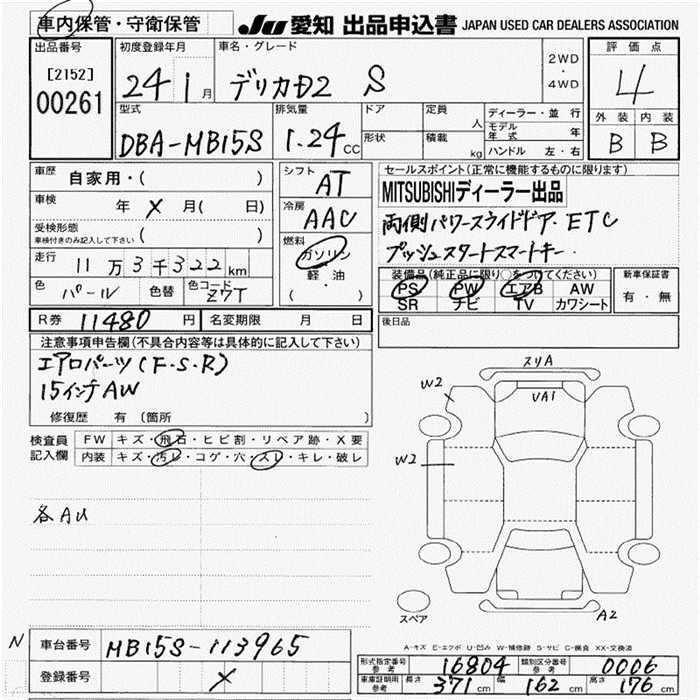 車内保管・守衛保管
JU 愛知 出品申込書 JAPAN USED CAR DEALERS ASSOCIATION
出品番号
[2152]
00261
初度登録年月
24 1月
車名・グレード
デリカD2 S
2WD
・
4WD
評価点
4
外装 内装
B B
型式
DBA-MB15S
排気量
1.24cc
ドア
形状
定員
人
積載
kg
ディーラー・並行
モデル年式 年
ハンドル 左・右
車歴
自家用・( )
車検
年 X 月( 日)
受検形態
車検付きのみ記入して下さい ( )
走行
11万3千322km
色 パール 色替 色コード Z7T
シフト
AT
冷房
AAC
燃料
ガソリン
軽油
( ・ )
R券 11480円 名変期限 月 日
セールスポイント(正常に機能するものに限ります)
MITSUBISHIディーラー出品
両側パワースライドドア・ETC
プッシュスタートスマートキー
装備品(純正品に限り○をつけてください)
PS PW エアB AW
SR ナビ TV カワシート
新車保証書
有・無
後日品
注意事項申告欄(不具合内容等は具体的に記入して下さい)
エアロパーツ(F・S・R)
15インチAW
修復歴 有(箇所 )
検査員
記入欄
FW キズ・飛石・ヒビ割・リペア跡・X要
内装 キズ・汚レ・コゲ・穴・スレ・キレ・破レ
各AU
スリA
W2
VA1
W2
A2
スペア
A-キズ E-エクボ U-凹み W-補修跡 S-サビ C-腐食 XX-交換済
N
車台番号 MB15S-113965
登録番号 X
形式指定番号 参考 16804 類別区分番号 参考 0006
車庫証明用 参考 長さ 371cm 幅 162cm 高さ 176cm